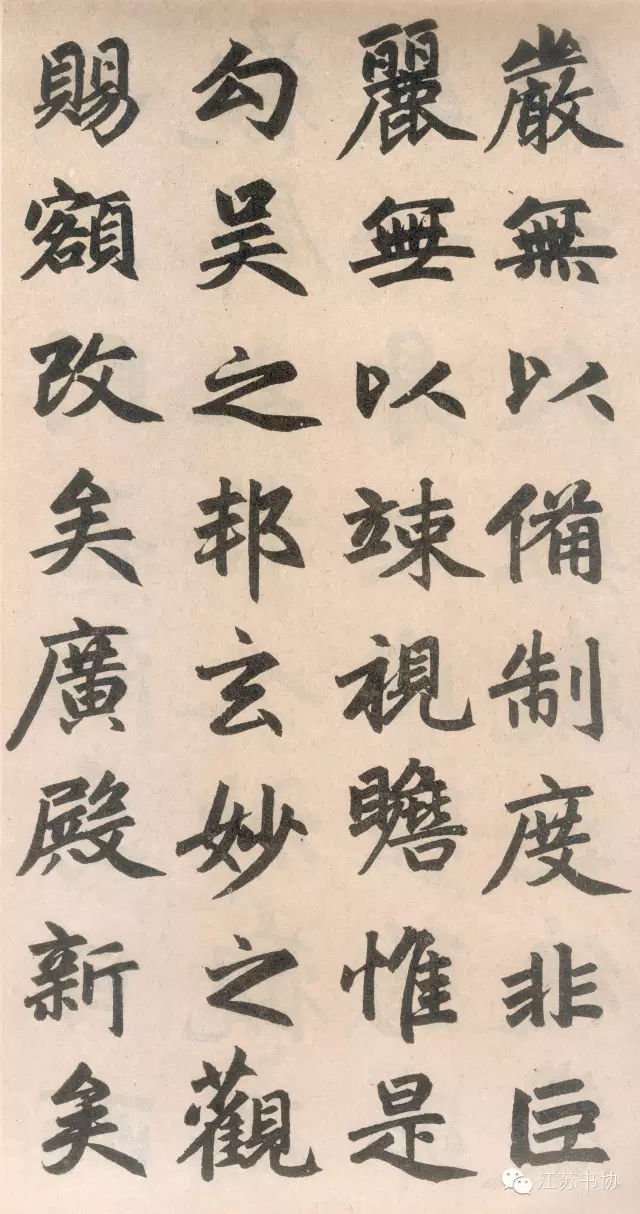 嚴無以備制度非巨
麗無以竦視瞻惟是
勾吴之邦玄妙之觀
賜額改矣廣殿新矣
江苏书协